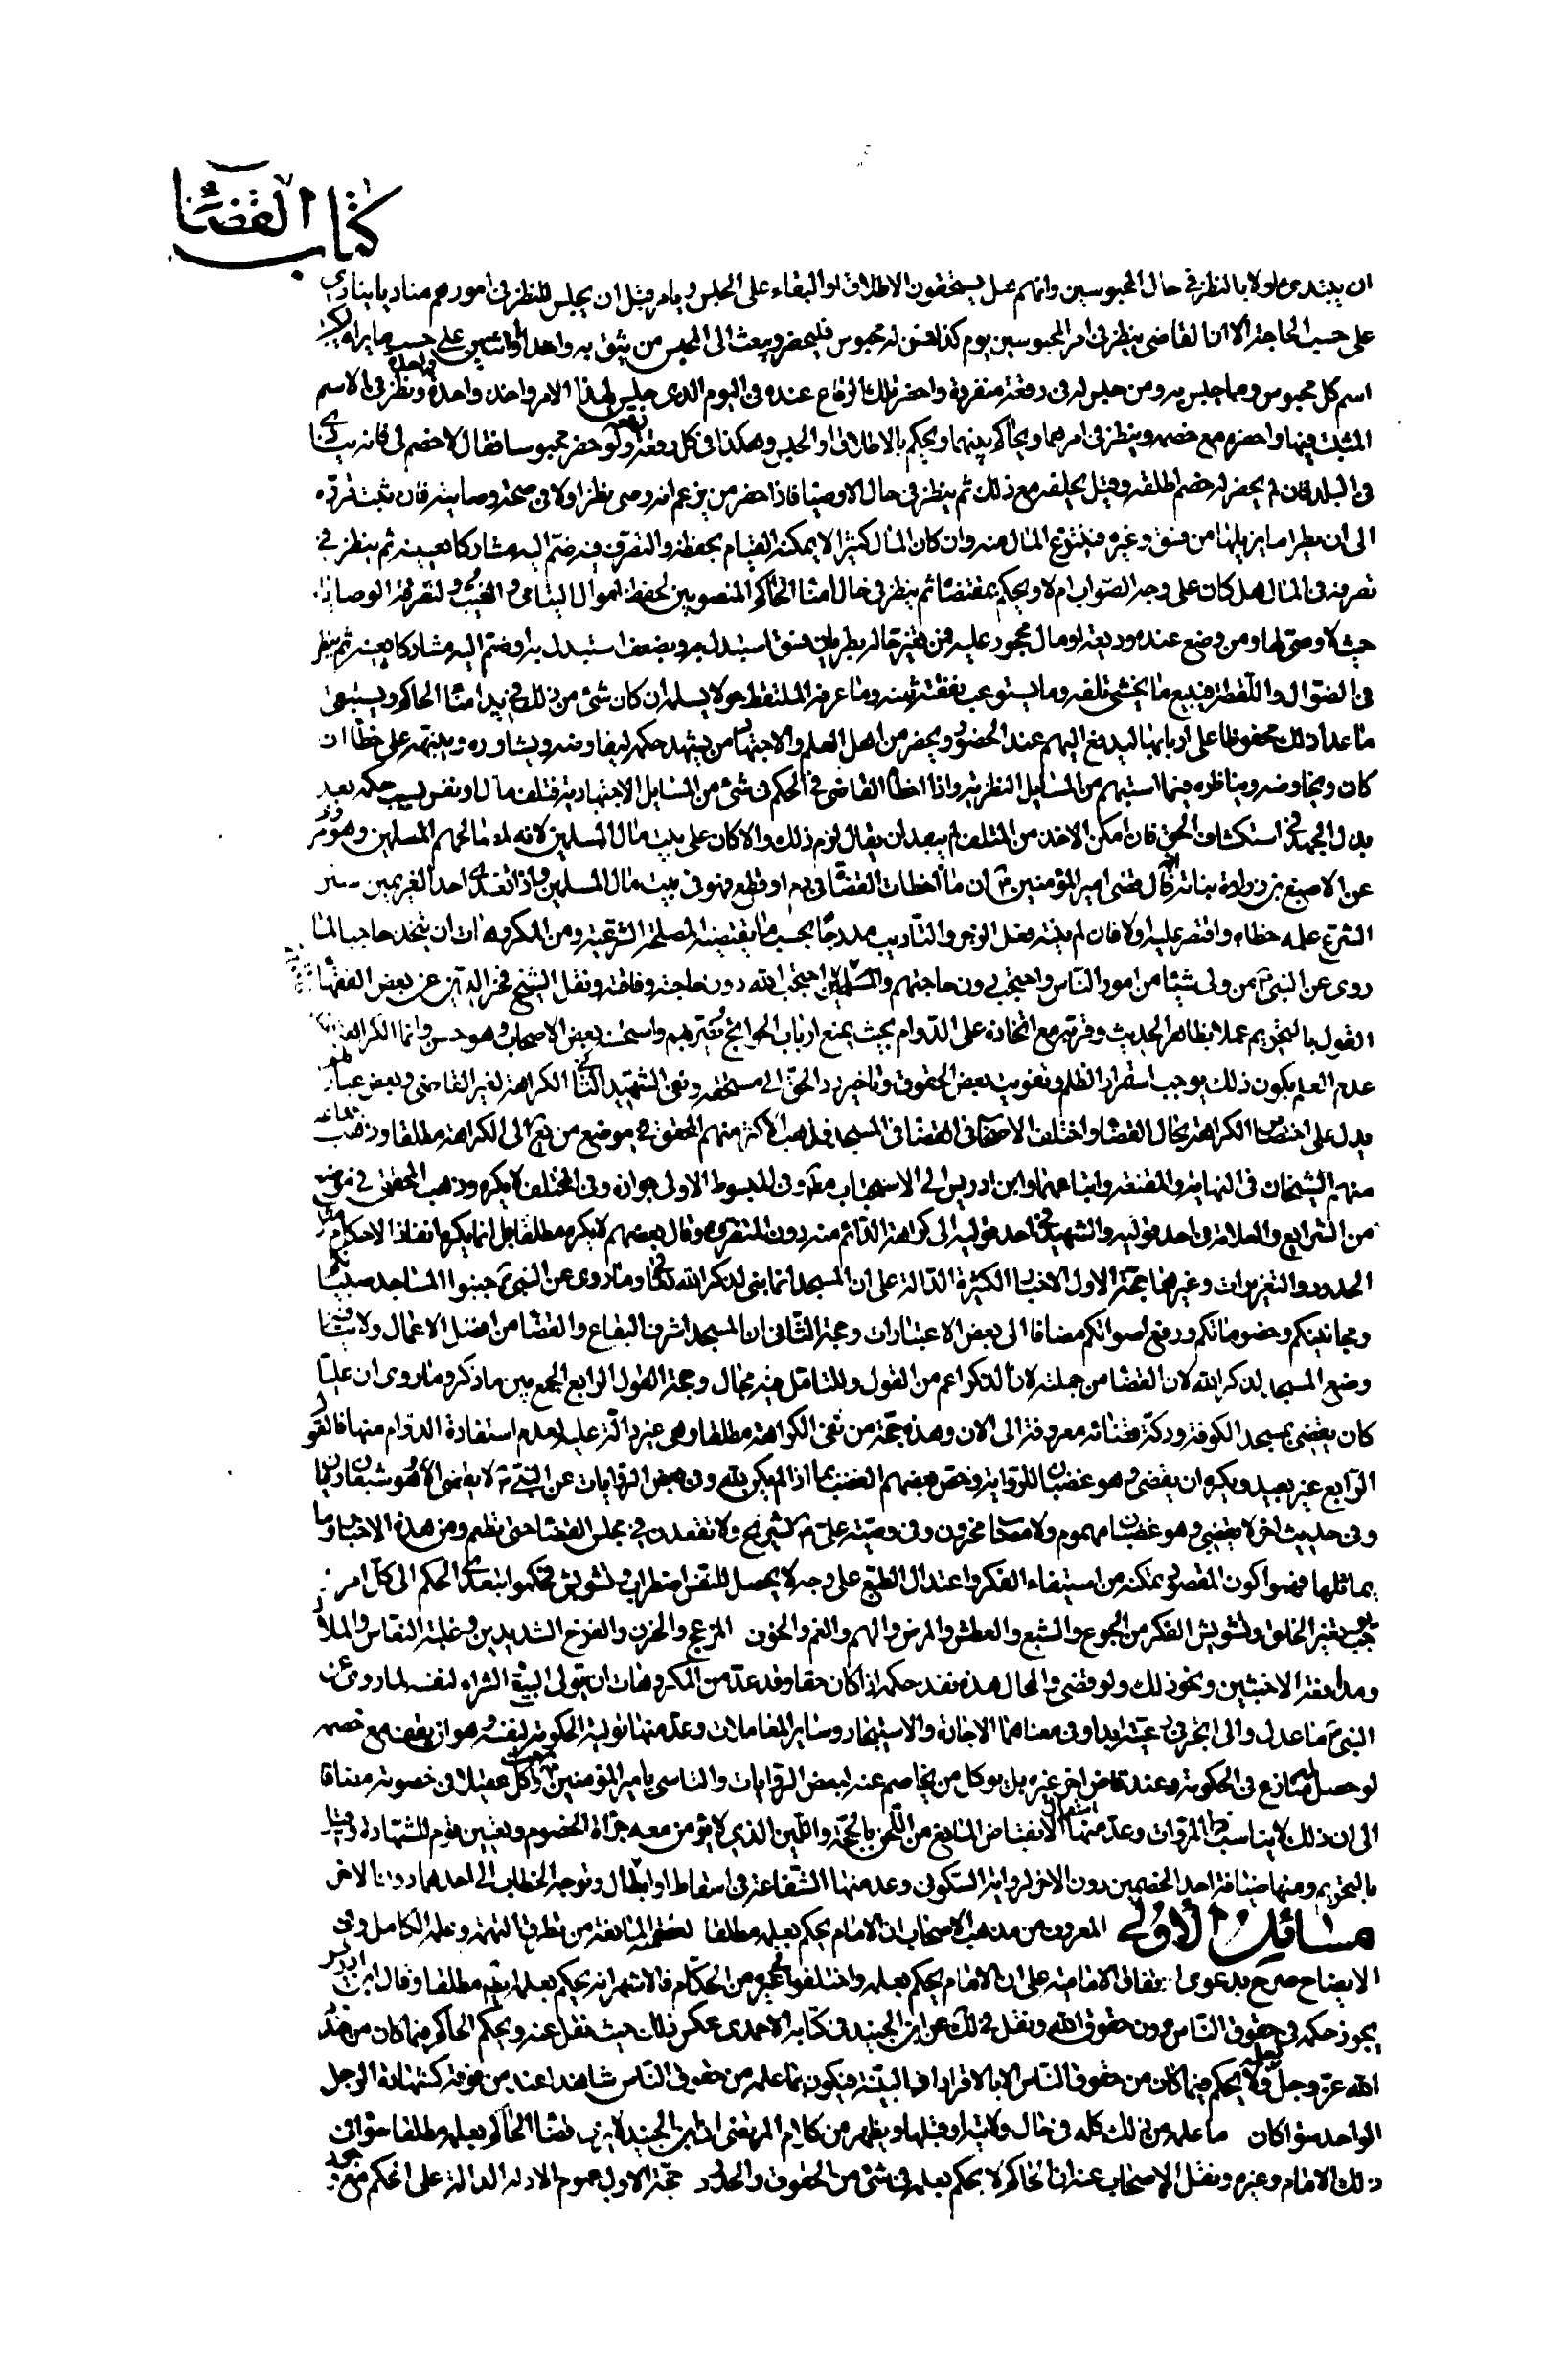 كتاب القضاء
ان يبتدئ اولا بالنظر في حال المحبوسين وانهم هل يستحقون الاطلاق او البقاء على الحبس ويامر قبل ان يجلس للنظر في امورهم مناديا ينادي
على حسب الحاجة الا ان القاضي ينظر في امر المحبوسين يوم كذا فمن له محبوس فليحضر ويبعث الى الحبس من يثق به واحدا او اثنين على حسب ما يراه ليكتب
اسم كل محبوس وما حبس به ومن حبس له في رقعة منفردة واحضر تلك الرقاع عنده في اليوم الذي جلس لهذا الامر واخذ واحدة واحدة ونظر في الاسم
المثبت فيها واحضره مع خصمه وينظر في امرهما ويحاكم بينهما ويحكم بالاطلاق او الحبس وهكذا في كل رقعة ولو حضر محبوسا فقال لا خصم لي فانه ينادى
في البلد فان لم يحضر له خصم اطلقه وقيل يحلفه مع ذلك ثم ينظر في حال الاوصيا فاذا حضر من يزعم انه وصى نظر اولا في صحة وصايته فان ثبت قرره
الى ان يطرا ما يزيلها من فسق وغيره فينتزع المال منه وان كان المال كثيرا لا يمكنه القيام بحفظه والتصرف فيه ضم اليه مشاركا يعينه ثم ينظر في
تصرفه في المال هل كان على وجه الصواب ام لا ويحكم بمقتضاه ثم ينظر في حال امناء الحاكم المنصوبين لحفظ اموال اليتامى والغيب ولتفرقة الوصايا
حيث لا وصى لها ومن وضع عنده وديعة او مال محجور عليه فمن تغير حاله بطريان فسق استبدل به وبضعف استبدل به او ضم اليه مشاركا يعينه ثم ينظر
في الضوال واللقطة فيبيع ما يخشى تلفه وما يستوعب نفقته ثمنه وما عرفه الملتقط حولا يسلمه ان كان شئ من ذلك في يد امناء الحاكم ويستبقى
ما عدا ذلك محفوظا على اربابها ليدفع اليهم عند الحضور ويحضر من اهل العلم والاجتهاد من يشهد حكمه ليفاوضه ويشاوره وينبهه على خطأ ان
كان ويخاوضه ويناظره فيما استبهم من المسايل النظرية واذا اخطأ القاضي في الحكم في شئ من المسايل الاجتهادية فتلف مال او نفس بسبب حكمه بعد
بذل الجهد في استكشاف الحق فان امكن الاخذ من المتلف لم يبعد ان يقال لزم ذلك والا كان على بيت مال المسلمين لانه لمصالحهم المسلمين وهو مروي
عن الاصبغ بن نباتة انه قال قضى امير المؤمنين ع ان ما اخطات القضاة في دم او قطع فهو في بيت مال المسلمين واذا تعدى احد الغريمين سنن
الشرع علمه خطاه واقتصر عليه اولا فان لم ينته فعل الزجر والتاديب مدرجا بحسب ما يقتضيه المصلحة الشرعية ومن المكروهات ان يتخذ حاجبا لما
روى عن النبي ص من ولى شيئا من امور الناس واحتجب دون حاجتهم احتجب الله دون حاجته وفاقته ونقل الشيخ فخر الدين عن بعض الفقهاء
القول بالتحريم عملا بظاهر الحديث وقربه مع اتخاذه على الدوام بحيث يمنع ارباب الحوائج واستحسنه بعض الاصحاب وهو حسن وانما الكراهة
يكون ذلك يوجب استمرار الظلم وتفويت بعض الحقوق وتاخير رد الحق الى مستحقه ونفى الشهيد الثاني الكراهة لغير القاضي وبعض
يدل على اختصاص الكراهة بحال القضاء واختلف الاصحاب في القضاء في المسجد فذهب الاكثر منهم المحقق في موضع من يع الى الكراهة مطلقا وذهب جماعة
منهم الشيخان في النهاية والمقنعة واتباعهما وابن ادريس الى الاستحباب مطلقا وفي المبسوط الاولى جوازه وفي المختلف لا يكره وذهب المحقق في موضع
من الشرايع والعلامة في احد قوليه والشهيد في احد قوليه الى كراهة الدائم منه دون المتفرق وقال بعضهم لا يكره مطلقا بل انما يكره انفاذ الاحكام
الحدود والتعزيرات وغيرها حجة الاول الاخبار الكثيرة الدالة على ان المسجد انما بنى لذكر الله تعالى وما روى عن النبي ص جنبوا المساجد صبيانكم
ومجانينكم وخصوماتكم ورفع اصواتكم مضافا الى بعض الاعتبارات وحجة الثاني ان المسجد اشرف البقاع والقضاء من افضل الاعمال ولا ينافيه
وضع المسجد لذكر الله لان القضاء من جملته لان الذكر اعم من القول وللتامل فيه مجال وحجة القول الرابع الجمع بين ما ذكر وما روى ان عليا
كان يقضي بمسجد الكوفة ودكة قضائه معروفة الى الان وهذه حجة من نفى الكراهة مطلقا وهى غير دالة عليه لعدم استفادة الدوام منها فالقول
الرابع غير بعيد ويكره ان يقضي وهو غضبان للرواية وخص بعضهم الغضب بما اذا لم يكن لله وفي بعض الروايات عن النبي ص لا يقضى الا وهو شبعان ريان
وفي حديث اخر لا يقضي وهو غضبان مهموم ولا مصاب محزون وفي وصية علي ع لشريح ولا تقعدن في مجلس القضاء حتى تطعم ومن هذه الاخبار وما
يماثلها فهموا كون المقصود تمكنه من استيفاء الفكر واعتدال الطبع على وجه لا يحصل للنفس اضطراب وتشويش فكموا بتعدي الحكم الى كل امر
يوجب تغير الخلق وتشويش الفكر من الجوع والشبع والعطش والمرض والهم والغم والخوف المزعج والحزن والفرح الشديدين وغلبة النعاس والملال
ومدافعة الاخبثين ونحو ذلك ولو قضى والحال هذه نفذ حكمه اذا كان حقا وقد عد من المكروهات ان يتولى البيع والشراء لنفسه لما روى عن
النبي ص ما عدل وال اتجر في رعيته ابدا وفي معناهما الاجارة والاستيجار وساير المعاملات وعد منها تولية الحكومة لنفسه وهو ان يقف مع خصمه
لو حصل له منازع في الحكومة وعند قاض اخر غيره بل يوكل من يخاصم عنه لبعض الروايات والتاسى بامير المؤمنين حيث وكل عقيلا في خصومة مضافا
الى ان ذلك لا يناسب المروات وعد منها استعمال الانقباض المانع من اللحن بالحجة واللين الذي لا يؤمن معه جراة الخصوم وتعيين قوم للشهادة وقيل
بالتحريم ومنها ضيافة احد الخصمين دون الاخر لرواية السكوني وعد منها الشفاعة في اسقاط او ابطال وتوجه الخطاب الى احدهما دون الاخر
مسائل الاولى المعروف من مذهب الاصحاب ان الامام يحكم بعلمه مطلقا لعصمته المانعة من تطرق التهمة وعلمه الكامل وفي
الايضاح صرح بدعوى اتفاق الامامية على ان الامام يحكم بعلمه واختلفوا في غيره من الحكام فالاشهر انه يحكم بعلمه ايضا مطلقا وقال ابن ادريس
يجوز حكمه في حقوق الناس دون حقوق الله ونقل في لك عن ابن الجنيد في كتابه الاحمدي عكس ذلك حيث نقل عنه ويحكم الحاكم فيما كان من حدود
الله عز وجل بعلمه ولا يحكم فيما كان من حقوق الناس الا بالاقرار او البينة فيكون بما علمه من حقوق الناس شاهدا عند من فوقه كشهادة الرجل
الواحد سواء كان ما علمه من ذلك كله في حال ولايته او قبلها ويظهر من كلام المرتضى ان ابن الجنيد لا يرى قضاء الحاكم بعلمه مطلقا سواء في
ذلك الامام وغيره ونقل الاصحاب عنه ان الحاكم لا يحكم بعلمه في شئ من الحقوق والحدود حجة الاول عموم الادلة الدالة على الحكم مع